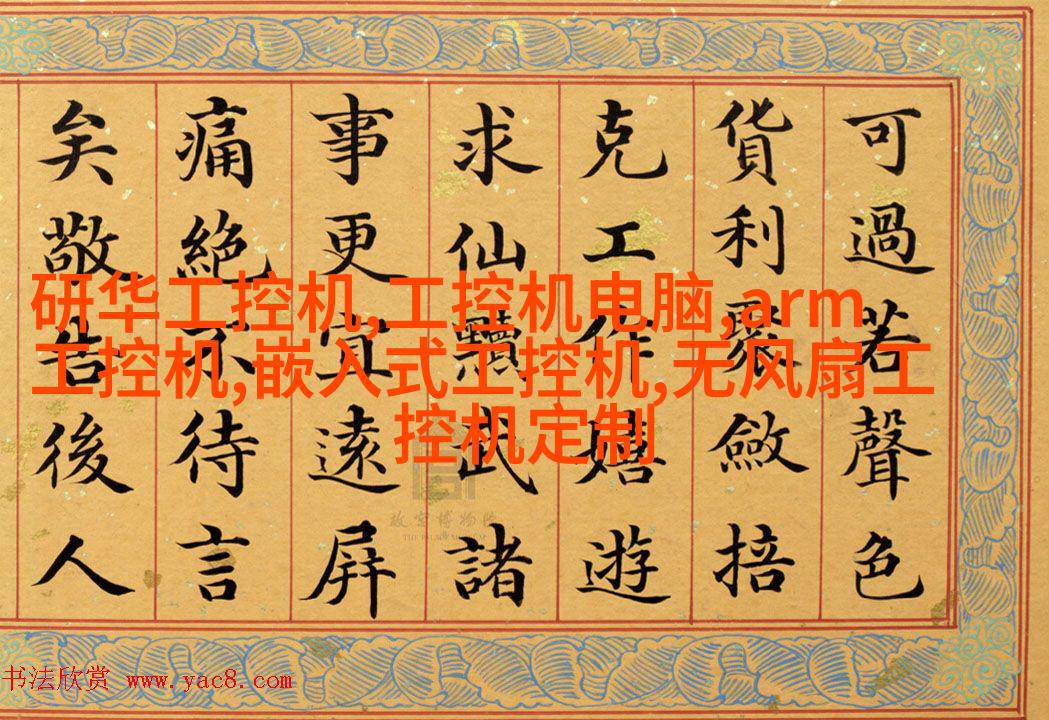 可過若聲色
貨利聚斂掊
克工作嬉遊
求仙黷武諸
事更宜遠屏
痛絕不待言
矣敬告後人
研华工控机,工控机电脑,arm
工控机,嵌入式工控机,无风扇工
控机定制
故宫博物院
THE PALACE MUSEUM
书法欣赏 www.yac8.com